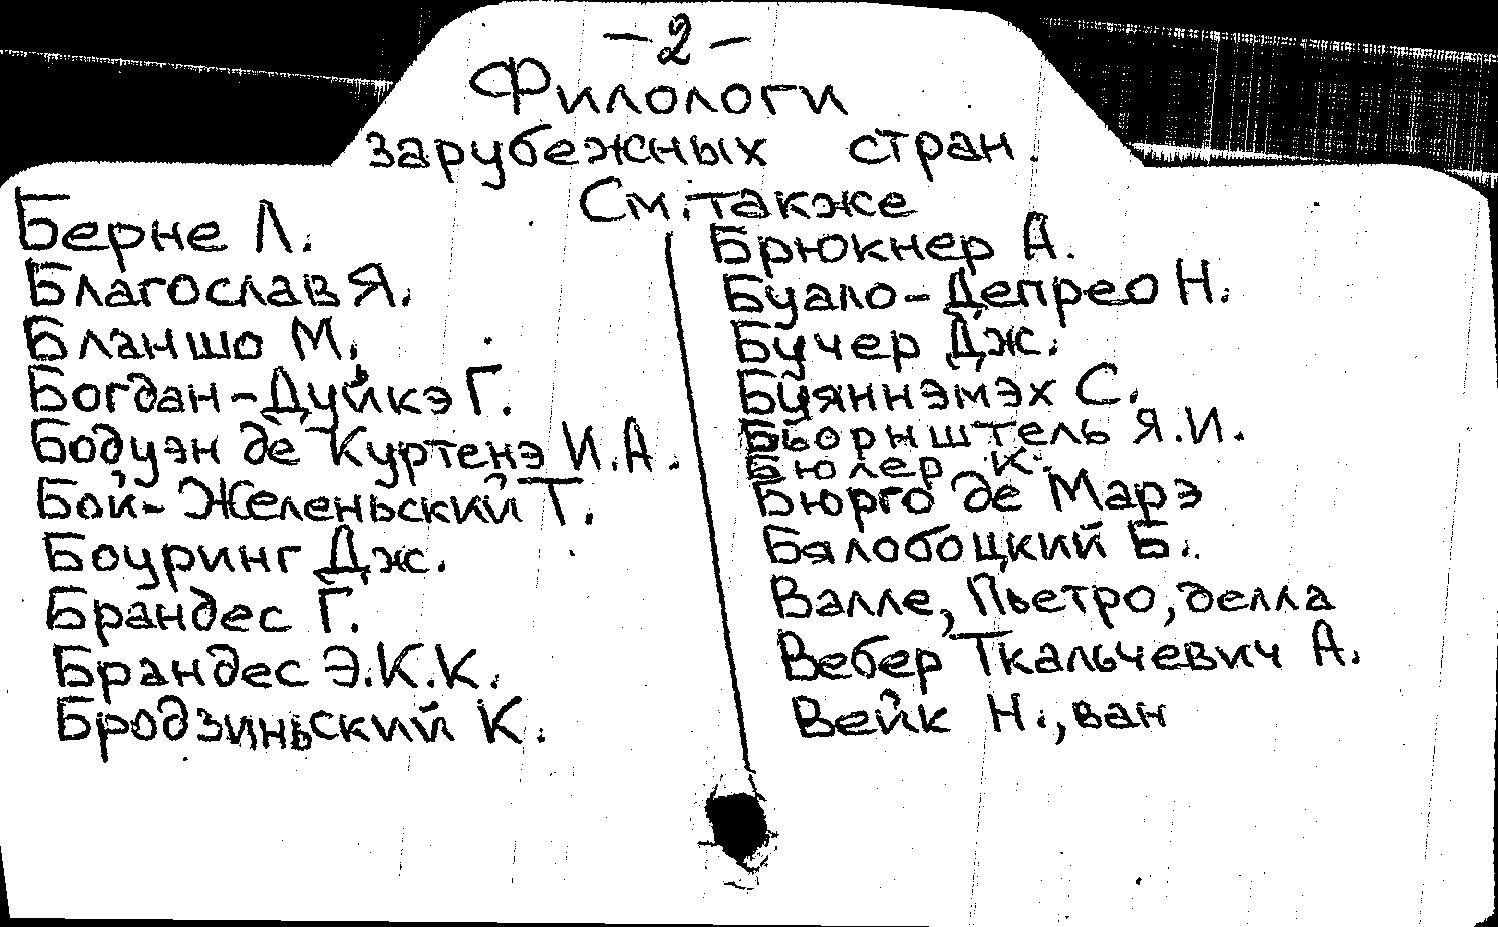 -2-
Филологи
зарубежных стран.
См. также
Берне Л.
Благослав Я.
Бланшо М.
Богдан-Дуйкэ Г.
Бодуэн де Куртенэ И.А.
Бой-Желеньский Т.
Боуринг Дж.
Брандес Г.
Брандес Э.К.К.
Бродзиньский К.
Брюкнер А.
Буало-Депрео Н.
Бучер Дж.
Буяннэмэх С.
Бьорнштель Я.И.
Бюлер К.
Бюрго де Марэ
Бялобоцкий Б.
Валле, Пьетро, делла
Вебер Ткальчевич А.
Вейк Н., ван